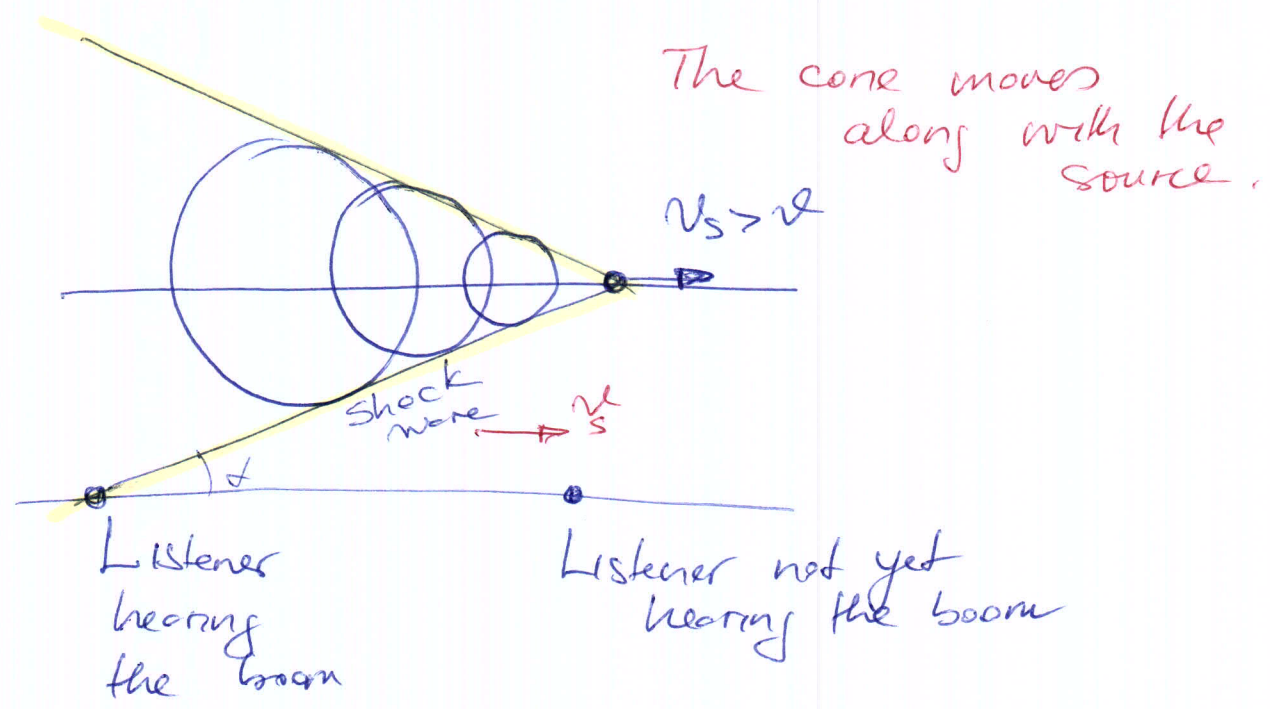 The cone moves
along with the
source.
v_s > v
Shock
wave
v_s
α
Listener
hearing
the boom
Listener not yet
hearing the boom